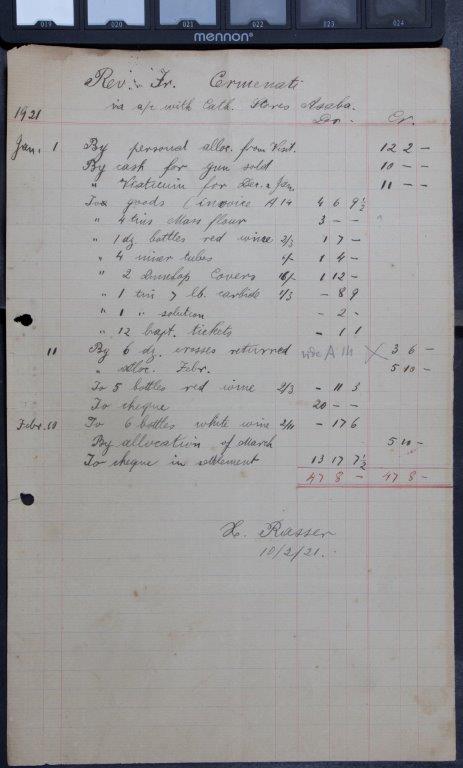 019 020 021 022 023 024
mennon
Rev. Fr. Ermenati
in a/c with Cath. Stores Asaba.
1921 Dr. Cr.
Jan. 1 By personal alloc. from Visit. 12 2 -
By cash for gun sold 10 - -
" Viaticum for Dec. & Jan. 11 - -
To goods (invoice A 14 4 6 9½
" 4 tins Mass flour 3 - -
" 1 dz bottles red wine 2/3 1 7 -
" 4 inner tubes 6/- 1 4 -
" 2 Dunlop Covers 16/- 1 12 -
" 1 tin 7 lb. carbide 1/3 - 8 9
" 1 " solution - 2 -
" 12 bapt. tickets - 1 1
11 By 6 dz. crosses returned vide A 14 X 3 6 -
" Alloc. Febr. 5 10 -
To 5 bottles red wine 2/3 - 11 3
To cheque 20 - -
Febr. 10 To 6 bottles white wine 2/11 - 17 6
By allocation of March 5 10 -
To cheque in settlement 13 17 7½
47 8 - 47 8 -
X. Rasser
10/2/21.